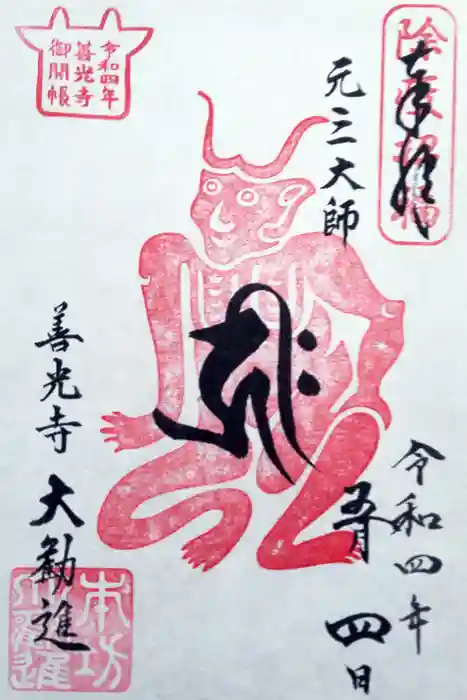 奉拝
除疫招福
元三大師
令和四年
五月四日
令和四年
善光寺
御開帳
善光寺
大勧進
本坊
大勧進